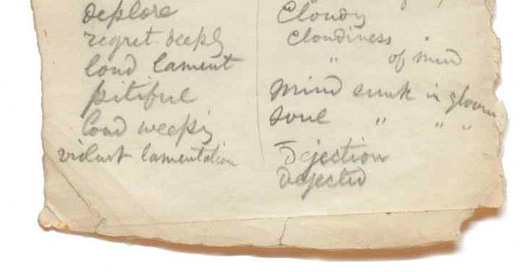 deplore
regret deeply
loud lament
pitiful
loud weeping
violent lamentation
Cloudy
cloudiness
" of mind
mind sunk in gloom
soul " " "
Dejection
Dejected